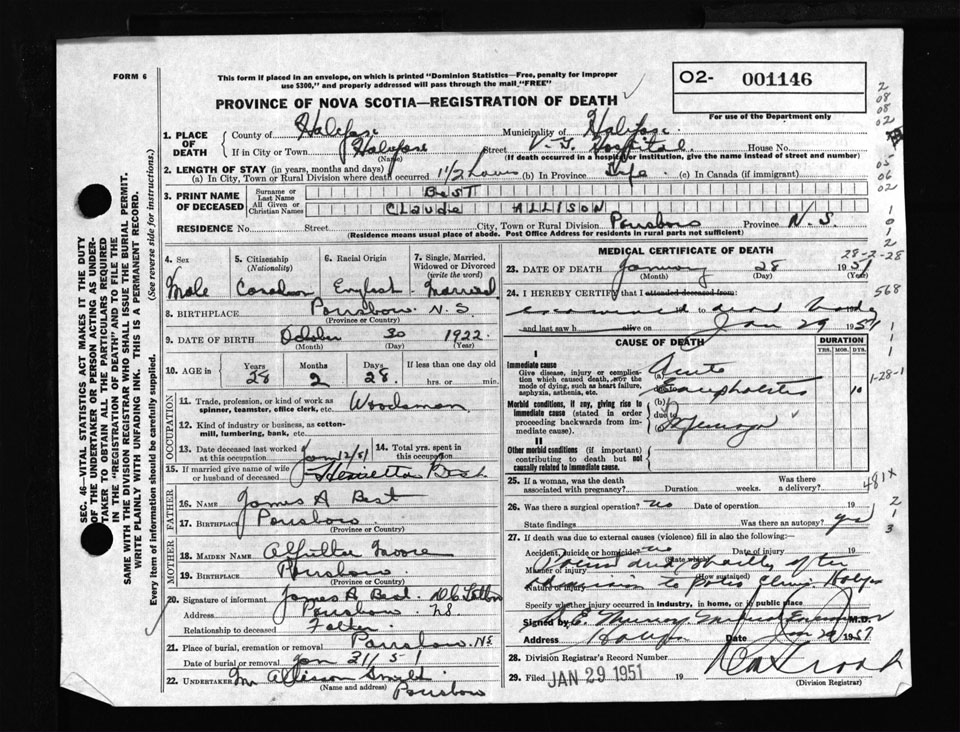 FORM 6
This form if placed in an envelope, on which is printed "Dominion Statistics—Free, penalty for improper
use $300," and properly addressed will pass through the mail "FREE"
O2- 001146
For use of the Department only
PROVINCE OF NOVA SCOTIA—REGISTRATION OF DEATH
1. PLACE OF DEATH
County of Halifax Municipality of Halifax
If in City or Town Halifax (Name) Street V. G. Hospital House No.
(If death occurred in a hospital or institution, give the name instead of street and number)
2. LENGTH OF STAY (in years, months and days)
(a) In City, Town or Rural Division where death occurred 1 1/2 hours (b) In Province Life (c) In Canada (if immigrant)
3. PRINT NAME OF DECEASED
Surname or Last Name BEST
All Given or Christian Names CLAUDE ALLISON
RESIDENCE No. Street City, Town or Rural Division Parrsboro Province N. S.
(Residence means usual place of abode. Post Office Address for residents in rural parts not sufficient)
4. Sex Male
5. Citizenship (Nationality) Canadian
6. Racial Origin English
7. Single, Married, Widowed or Divorced (write the word) Married
8. BIRTHPLACE Parrsboro N. S.
(Province or Country)
9. DATE OF BIRTH October 30 1922
(Month) (Day) (Year)
10. AGE in Years 28 Months 2 Days 28 If less than one day hrs. or min.
OCCUPATION
11. Trade, profession, or kind of work as spinner, teamster, office clerk, etc. Woodsman
12. Kind of industry or business, as cotton-mill, lumbering, bank, etc.
13. Date deceased last worked at this occupation Jan 12/51
14. Total yrs. spent in this occupation
15. If married give name of wife or husband of deceased Henrietta Best
FATHER
16. NAME James A Best
17. BIRTHPLACE Parrsboro
(Province or Country)
MOTHER
18. MAIDEN NAME
19. BIRTHPLACE Parrsboro
(Province or Country)
20. Signature of informant James A Best
Address Parrsboro NS
Relationship to deceased Father
21. Place of burial, cremation or removal Parrsboro NS
Date of burial or removal Jan 31/51
22. UNDERTAKER Allison Smith
(Name and address) Parrsboro
MEDICAL CERTIFICATE OF DEATH
28-2-28
23. DATE OF DEATH January 28 1951
(Month) (Day)
24. I HEREBY CERTIFY that I attended deceased from:
examined dead body
and last saw h alive on Jan 29 1951
568
CAUSE OF DEATH
DURATION
YRS. MOS. DYS.
I
Immediate cause
Give disease, injury or complication which caused death, not the mode of dying, such as heart failure, asphyxia, asthenia, etc.
(a) Acute
due to Encephalitis 10
1-28-1
Morbid conditions, if any, giving rise to immediate cause (stated in order proceeding backwards from immediate cause).
(b)
due to
II
Other morbid conditions (if important) contributing to death but not causally related to immediate cause.
25. If a woman, was the death associated with pregnancy? Duration weeks. Was there a delivery?
481X
26. Was there a surgical operation? no Date of operation 19
State findings Was there an autopsy? yes
27. If death was due to external causes (violence) fill in also the following:
Accident, suicide or homicide? no Date of injury 19
(State which)
Manner of injury
(How sustained)
Nature of injury
shortly after admission to Polio Clinic
Specify whether injury occurred in industry, in home, or in public place
Signed by E. Murray Medical Examiner M.D.
Address Halifax Date Jan 29 1951
28. Division Registrar's Record Number
29. Filed JAN 29 1951 19
(Division Registrar)
SEC. 46—VITAL STATISTICS ACT MAKES IT THE DUTY
OF THE UNDERTAKER OR PERSON ACTING AS UNDER-
TAKER TO OBTAIN ALL THE PARTICULARS REQUIRED
IN THE "REGISTRATION OF DEATH" AND TO FILE THE
SAME WITH THE DIVISION REGISTRAR WHO SHALL ISSUE THE BURIAL PERMIT.
WRITE PLAINLY WITH UNFADING INK. THIS IS A PERMANENT RECORD.
Every item of information should be carefully supplied. (See reverse side for instructions.)
2
08
08
02
05
06
02
1
0
1
0
2
1
1
1
2
1
3